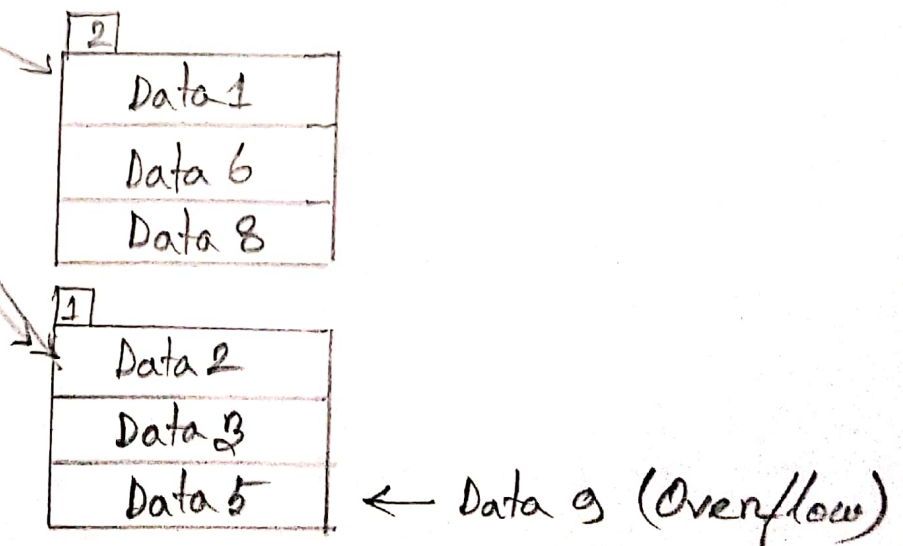 2
Data 1
Data 6
Data 8
1
Data 2
Data 3
Data 5 ← Data 9 (Overflow)